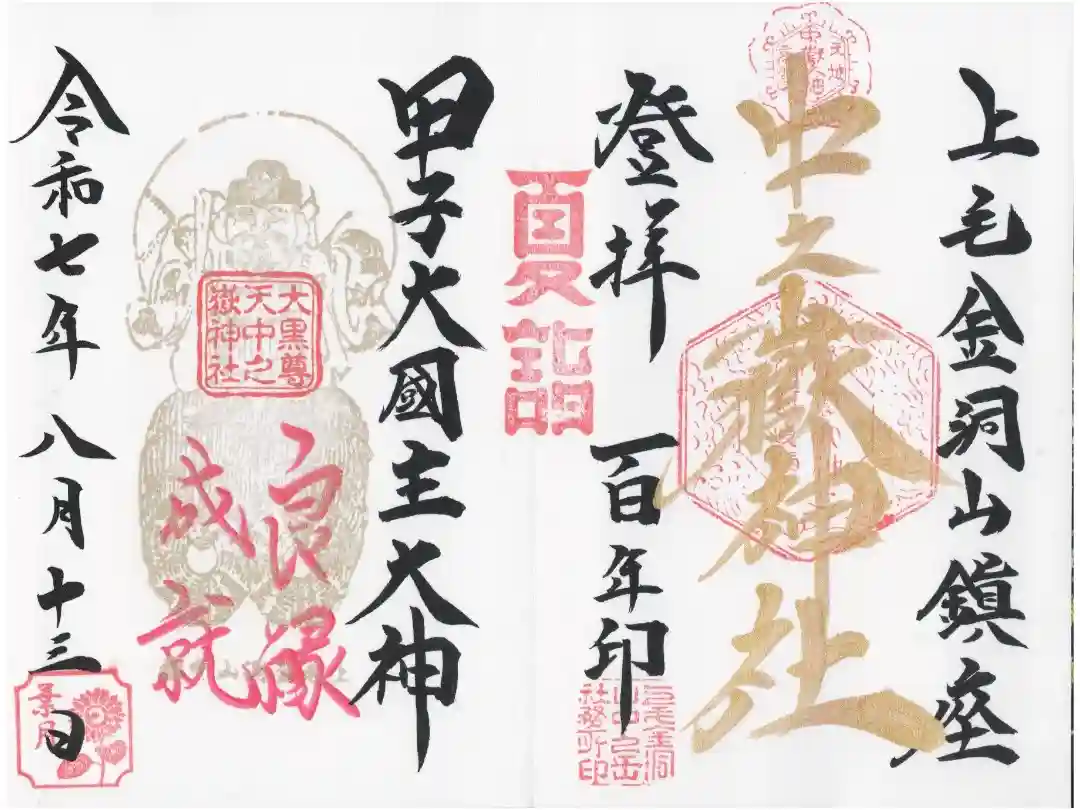 上毛金洞山鎮座
中之嶽神社
登拝 百年印
夏詣
甲子大國主大神
良縁
成就
大黒尊
天中之
嶽神社
令和七年 八月十三日
葉月